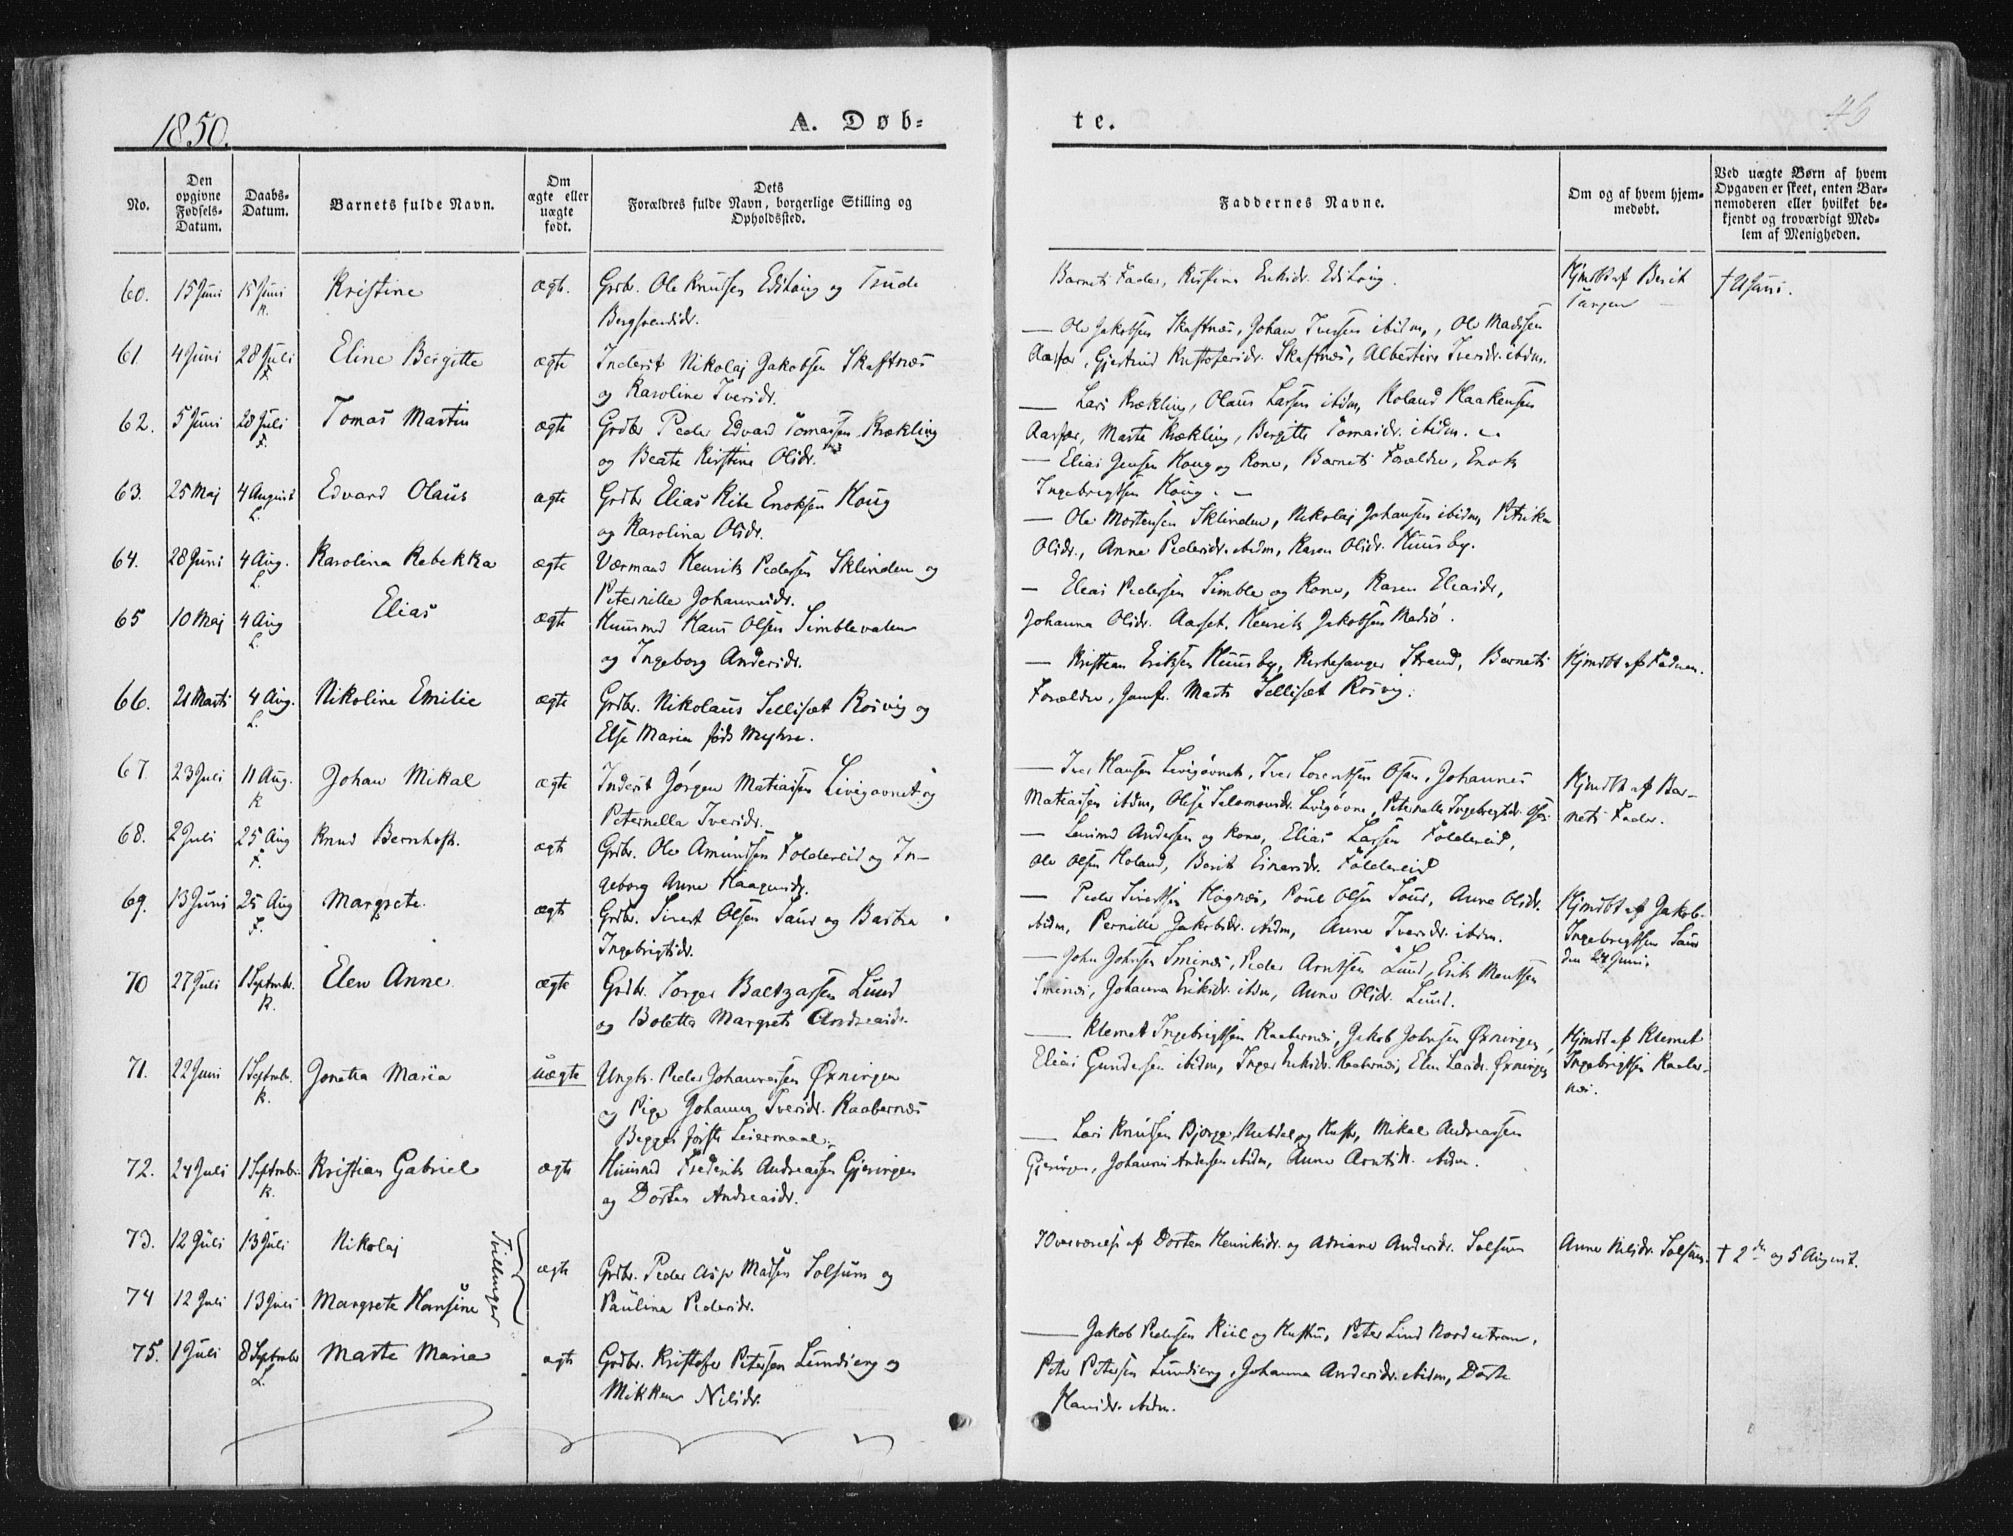 1850.
A. Døb-
te.
46
No.
Den opgivne Fødsels-Datum.
Daabs-Datum.
Barnets fulde Navn.
Om ægte eller uægte født.
Dets Forældres fulde Navn, borgerlige Stilling og Opholdssted.
Faddernes Navne.
Om og af hvem hjem-medøbt.
Ved uægte Børn af hvem Opgaven er skeet, enten Bar-nemoderen eller hvilket be-kjendt og troværdigt Med-lem af Menigheden.
60. 15 Juni 15 Juni K. Kristine ægt. Grdbr. Ole Knutsen Edshaug og Trude
Bergsvendsdr.
Barnets Fader, Kristine Eriksdr. Edshaug.
Hjmdbt af Berit
Tangen
61. 4 Juni 28 Juli F. Eline Bergitte ægte Inderst Nikolaj Jakobsen Skaftnæs
og Karoline Iversdr.
— Ole Jakobsen Skaftnæs, Johan Iversen ibidm, Ole Madssen
Aarfor, Gjertrud Kristofersdr. Skaftnæs, Albertine Iversdr. ibidm.
62. 5 Juni 28 Juli F. Tomas Martin ægte Grdbr Peder Edvard Tomassen Krækling
og Beate Kirstine Olsdr.
— Lars Krækling, Olaus Larsen ibidm, Roland Haakensen
Aarfor, Marte Krækling, Bergitte Tomasdr. ibidm.
63. 25 Maj 4 August L. Edvard Olaus ægte Grdbr Elias Ribe Enoksen Houg
og Karolina Olsdr.
— Elias Jensen Houg og Kone, Barnets Forældre, Enok
Ingebrigtsen Houg.
64. 28 Juni 4 Aug. L. Karolina Rebekka ægte Værmand Henrik Pedersen Sklinden og
Peternille Johannesdr.
— Ole Mortensen Sklinden, Nikolaj Johansen ibidm, Petrikke
Olsdr., Anne Pedersdr. ibidm, Karen Olsdr. Huusby.
65 10 Maj 4 Aug L. Elias ægte Huusmd Hans Olsen Simblevalen
og Ingeborg Andersdr.
— Elias Pedersen Simble og Kone, Karen Eliasdr,
Johanna Olsdr. Aarset. Henrik Jakobsen Madsø.
66. 21 Marts 4 Aug. L. Nikoline Emilie ægte Grdbr. Nikolaus Sellisæt Rosvig og
Else Maria føds Myhre.
— Kristian Eriksen Huusby, Kirkesanger Strand, Barnets
Forældre, Jomfr. Marts Sellisæt Rosvig.
Hjmdbt af Faderen.
67. 23 Juli 11 Aug. K Johan Mikal ægte Inderst Jørgen Matiassen Livigøvnet og
Peternella Iversdr.
— Iver Hansen Livigøvnet, Iver Lorentsen Osen, Johannes
Matiassen ibidm, Olise Salomonsdr. Livigøvne, Peternelle Ingebrigtsdr. Osen
Hjmdbt af Bar-
nets Fader.
68. 2 Juli 25 Aug F. Knud Bernhoft. ægt Grdbr. Ole Amundsen Foldereid og In-
geborg Anne Haagensdr.
— Lensmd Andersen og Kone, Elias Larsen Foldereid,
Ole Olsen Holand, Berit Einersdr. Foldereid
69. 13 Juni 25 Aug F. Margrete. ægte Grdbr. Sivert Olsen Saur og Barbra
Ingebrigtsdr.
— Peder Sivertsen Høgnæs, Poul Olsen Saur, Anne Olsdr.
ibidm, Pernille Jakobsdr. ibidm, Anne Iversdr. ibidm.
Hjmdbt af Jakob
Ingebrigtsen Saur
den 24 Juni.
70 27 Juli 1 Septembr. K. Elen Anne ægte Grdbr. Torger Baltzarsen Lund
og Boletta Margrete Andreasdr.
— John Johnsen Sminæs, Peder Arntsen Lund, Erik Montsen
Sminæs, Johanna Eriksdr. ibidm, Anne Olsdr. Lund.
71. 22 Juni 1 Septembr. K. Jonetta Maria uægte Ungk. Peder Johannessen Øxningen
og Pige Johanna Iversdr. Raabernæs
Begges første Leiermaal.
— Klemet Ingebrigtsen Raabernæs, Jakob Johnsen Øxningen,
Elias Gundersen ibidm, Inger Eriksdr. Raabernæs, Elen Larsdr. Øxningen
Hjmdbt af Klemet
Ingebrigtsen Raaber-
næs.
72. 24 Juli 1 Septembr. K. Kristian Gabriel ægte Huusmd Frederik Andreassen Gjeringen
og Dorten Andreasdr.
— Lars Knutsen Bjorge, Nubdal og Hustr, Mikal Andreassen
Gjeringen, Johannes Andersen ibidm, Anne Arntsdr. ibidm.
73. 12 Juli 13 Juli Nikolaj
Tvillinger
ægte Grdbr. Peder Asp Madsen Solsum og
Paulina Pedersdr.
I Overværelse af Dorten Henriksdr. og Adriane Andersdr. Solsum
Anne Nilsdr. Solsum.
† 2den og 5 August.
74 12 Juli 13 Juli Margrete Hansine
75. 1 Juli 8 Septembr L. Marte Marie ægte Grdbr. Kristofer Petersen Lundseng og
Mikken Nilsdr.
— Jakob Pedersen Kiil og Hustru, Peter Lund Nordentram,
Peter Petersen Lundseng, Johanna Andersdr. ibidm, Dorte
Hansdr. ibidm.